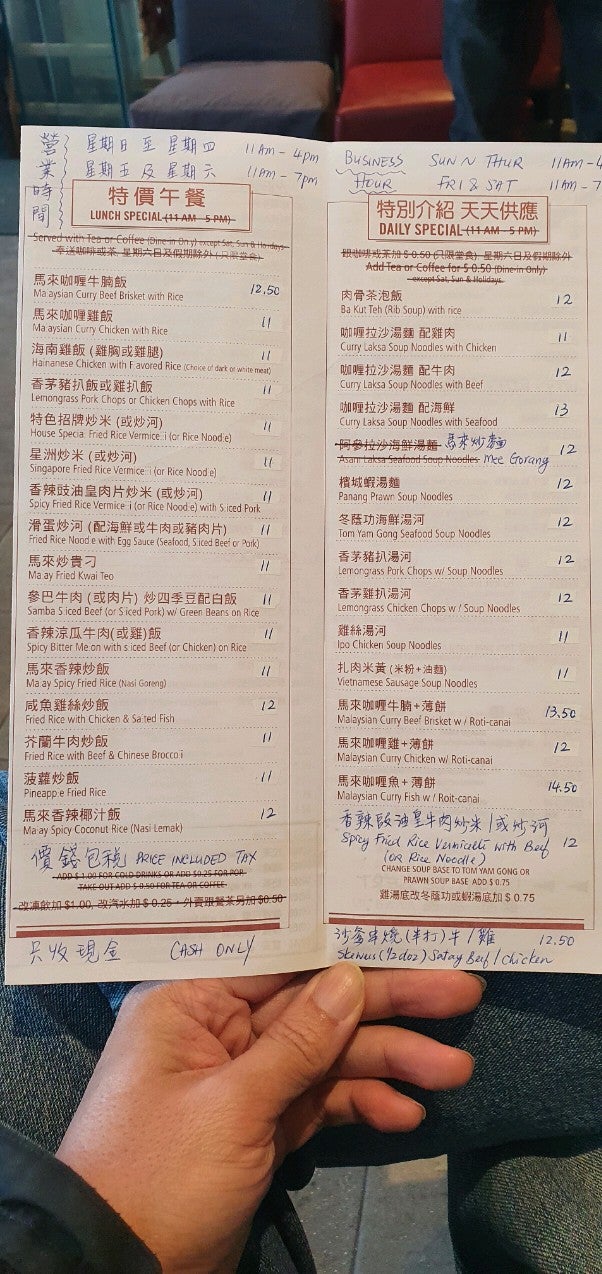 營業時間
星期日至星期四 11AM - 4pm
星期五及星期六 11AM - 7pm
特價午餐
LUNCH SPECIAL (11 AM - 5 PM)
Served with Tea or Coffee (Dine-in Only) except Sat, Sun & Holidays
奉送咖啡或茶, 星期六日及假期除外 (只限堂食)
馬來咖喱牛腩飯 12.50
Malaysian Curry Beef Brisket with Rice
馬來咖喱雞飯 11
Malaysian Curry Chicken with Rice
海南雞飯 (雞胸或雞腿) 11
Hainanese Chicken with Flavored Rice (Choice of dark or white meat)
香茅豬扒飯或雞扒飯 11
Lemongrass Pork Chops or Chicken Chops with Rice
特色招牌炒米 (或炒河) 11
House Special Fried Rice Vermicelli (or Rice Noodle)
星洲炒米 (或炒河) 11
Singapore Fried Rice Vermicelli (or Rice Noodle)
香辣豉油皇肉片炒米 (或炒河) 11
Spicy Fried Rice Vermicelli (or Rice Noodle) with Sliced Pork
滑蛋炒河 (配海鮮或牛肉或豬肉片) 11
Fried Rice Noodle with Egg Sauce (Seafood, Sliced Beef or Pork)
馬來炒貴刁 11
Malay Fried Kwai Teo
參巴牛肉 (或肉片) 炒四季豆配白飯 11
Sambal Sliced Beef (or Sliced Pork) w/ Green Beans on Rice
香辣涼瓜牛肉(或雞)飯 11
Spicy Bitter Melon with sliced Beef (or Chicken) on Rice
馬來香辣炒飯 11
Malay Spicy Fried Rice (Nasi Goreng)
咸魚雞絲炒飯 12
Fried Rice with Chicken & Salted Fish
芥蘭牛肉炒飯 11
Fried Rice with Beef & Chinese Broccoli
菠蘿炒飯 11
Pineapple Fried Rice
馬來香辣椰汁飯 12
Malay Spicy Coconut Rice (Nasi Lemak)
價錢包稅 PRICE INCLUDED TAX
ADD $ 1.00 FOR COLD DRINKS OR ADD $0.25 FOR POP
TAKE OUT ADD $ 0.50 FOR TEA OR COFFEE
改凍飲加 $1.00, 改汽水加 $ 0.25，外賣跟餐茶另加 $0.50
只收現金 CASH ONLY
BUSINESS HOUR
SUN N THUR 11AM - 4
FRI & SAT 11AM - 7
特別介紹 天天供應
DAILY SPECIAL (11 AM - 5 PM)
跟咖啡或茶加 $ 0.50 (只限堂食), 星期六日及假期除外
Add Tea or Coffee for $ 0.50 (Dine-in Only)
except Sat, Sun & Holidays
肉骨茶泡飯 12
Ba Kut Teh (Rib Soup) with rice
咖喱拉沙湯麵 配雞肉 11
Curry Laksa Soup Noodles with Chicken
咖喱拉沙湯麵 配牛肉 12
Curry Laksa Soup Noodles with Beef
咖喱拉沙湯麵 配海鮮 13
Curry Laksa Soup Noodles with Seafood
阿參拉沙海鮮湯麵 馬來炒麵 12
Asam Laksa Seafood Soup Noodles Mee Gorang
檳城蝦湯麵 12
Panang Prawn Soup Noodles
冬蔭功海鮮湯河 12
Tom Yam Gong Seafood Soup Noodles
香茅豬扒湯河 12
Lemongrass Pork Chops w/ Soup Noodles
香茅雞扒湯河 12
Lemongrass Chicken Chops w / Soup Noodles
雞絲湯河 11
Ipo Chicken Soup Noodles
扎肉米黃 (米粉+油麵) 11
Vietnamese Sausage Soup Noodles
馬來咖喱牛腩+薄餅 13.50
Malaysian Curry Beef Brisket w / Roti-canai
馬來咖喱雞+薄餅 12
Malaysian Curry Chicken w/ Roti-canai
馬來咖喱魚+薄餅 14.50
Malaysian Curry Fish w / Roit-canai
香辣豉油皇牛肉炒米/或炒河
Spicy Fried Rice Vermicelli with Beef 12
(OR Rice Noodle)
CHANGE SOUP BASE TO TOM YAM GONG OR
PRAWN SOUP BASE ADD $ 0.75
雞湯底改冬蔭功或蝦湯底加 $ 0.75
沙爹串燒(半打)牛/雞 12.50
Skewers (1/2 doz) Satay Beef / Chicken